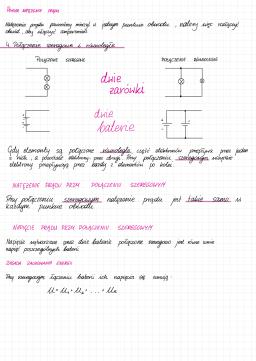 Pomiar natężenia prądu
Natężenie prądu mierzymy w jednym punkcie obwodu, należy więc rozłączyć
obwód, aby włączyć amperomierz.
4. Połączenie szeregowe i równoległe
Połączenie szeregowe Połączenie równoległe
dwie
żarówki
dwie
baterie
Gdy elementy są połączone równolegle część elektronów przepływa przez jeden
z nich, a pozostałe elektrony przez drugi. Przy połączeniu szeregowym wszystkie
elektrony przepływają przez każdy z elementów po kolei.
NATĘŻENIE PRĄDU PRZY POŁĄCZENIU SZEREGOWYM
Przy połączeniu szeregowym natężenie prądu jest takie samo w
każdym punkcie obwodu.
NAPIĘCIE PRĄDU PRZY POŁĄCZENIU SZEREGOWYM
Napięcie wytwarzane przez dwie baterie połączone szeregowo jest równe sumie
napięć poszczególnych baterii.
ZASADA ZACHOWANIA ENERGII
Przy szeregowym łączeniu baterii ich napięcia się sumują:
U = U₁ + U₂ + ... + Uₙ